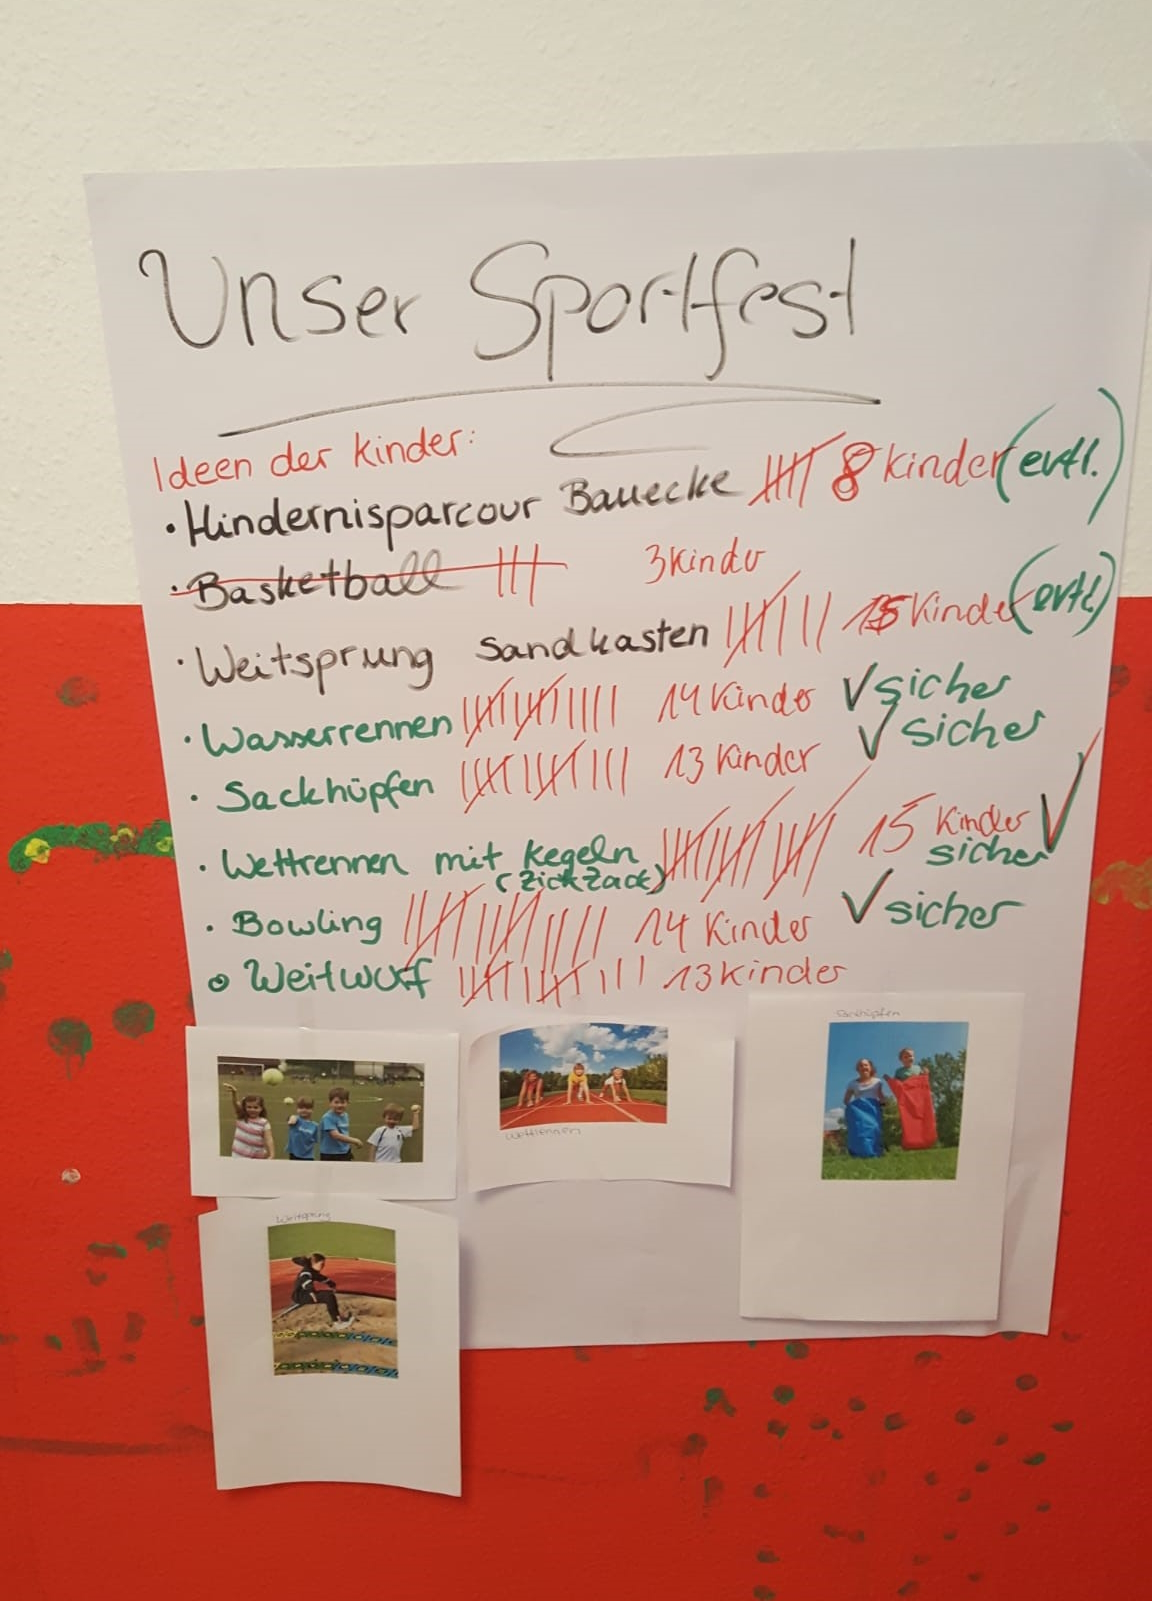 Unser Sportfest
Ideen der Kinder:
• Hindernisparcour Bauecke 8 Kinder (evtl.)
• Basketball 3 Kinder
• Weitsprung Sandkasten Kinder (evtl.)
• Wasserrennen 14 Kinder ✓ sicher
• Sackhüpfen 13 Kinder ✓ sicher
• Wettrennen mit Kegeln 15 Kinder ✓
(ZickZack) sicher
• Bowling 14 Kinder ✓ sicher
• Weitwurf 13 Kinder
Sackhüpfen
Wettrennen
Weitsprung